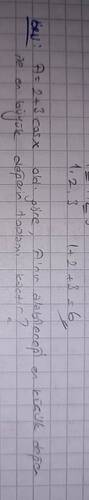 1.2.3    1+2+3=6
Soru: A = 2+3 cosx old. göre, A'nın alabileceği en küçük değer
ile en büyük değerin toplamı kaçtır?